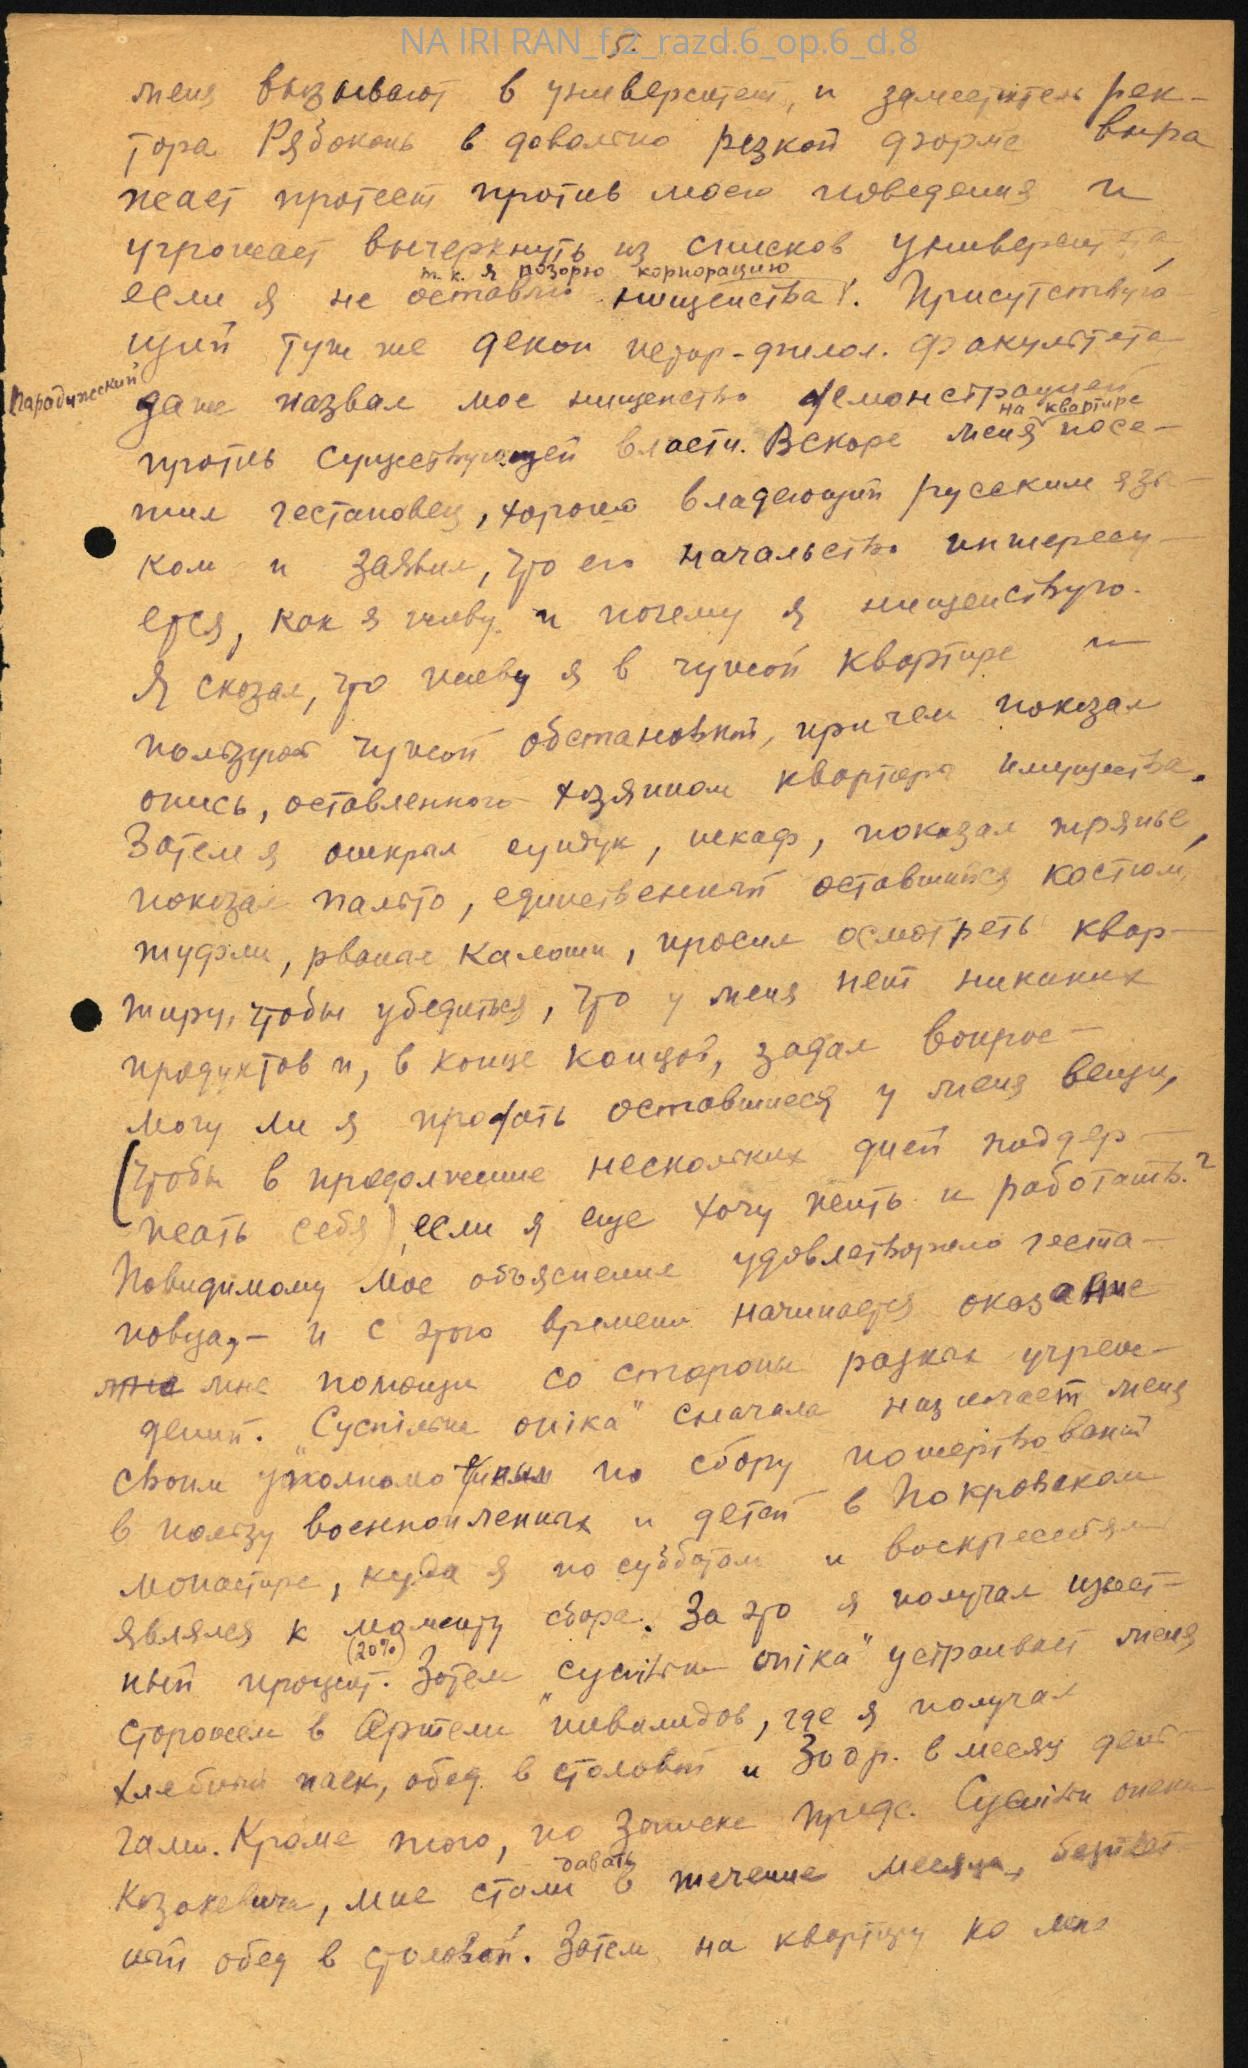 NA IRI RAN_f.2_razd.6_op.6_d.8
5.
меня вызывают в университет, и заместитель рек-
тора Рябоконь в довольно резкой форме выра
жает протест против моего поведения и
угрожает вычеркнуть из списков университета,
т.к. я позорю корпорацию
если я не оставлю нищенства!. Присутствую-
щий тут же декан истор-филол. факультета
Парадижский
даже назвал мое нищенство демонстрацией
на квартире
против существующей власти. Вскоре меня посе-
тил гестаповец, хорошо владеющий русским язы-
ком и заявил, что его начальство интересу-
ется, как я живу и почему я нищенствую.
Я сказал, что живу я в чужой квартире и
пользуюсь чужой обстановкой, причем показал
опись, оставленного хозяином квартиры имущества.
Затем я открыл сундук, шкаф, показал тряпье,
показал пальто, единственный оставшийся костюм,
туфли, рваные калоши, просил осмотреть квар-
тиру, чтобы убедиться, что у меня нет никаких
продуктов и, в конце концов, задал вопрос -
могу ли я продать оставшиеся у меня вещи,
(чтобы в продолжение нескольких дней поддер-
жать себя), если я еще хочу жить и работать.?
Повидимому мое объяснение удовлетворило геста-
повца, - и с этого времени начинается оказание
мне мне помощи со стороны разных учреж-
дений. „Суспільна опіка" сначала назначает меня
своим уполномоченным по сбору пожертвований
в пользу военнопленных и детей в Покровском
монастыре, куда я по субботам и воскресеньям
являлся к моменту сбора. За это я получал извест-
(20%)
ный процент. Затем „суспільна опіка" устраивает меня
сторожем в Артели инвалидов, где я получал
хлебный паек, обед в столовой и 300 р. в месяц день-
гами. Кроме того, по записке предс. Суспільн опеки
давать
Козакевича, мне стали в течение месяца, бесплат-
ный обед в столовой. Затем на квартиру ко мне